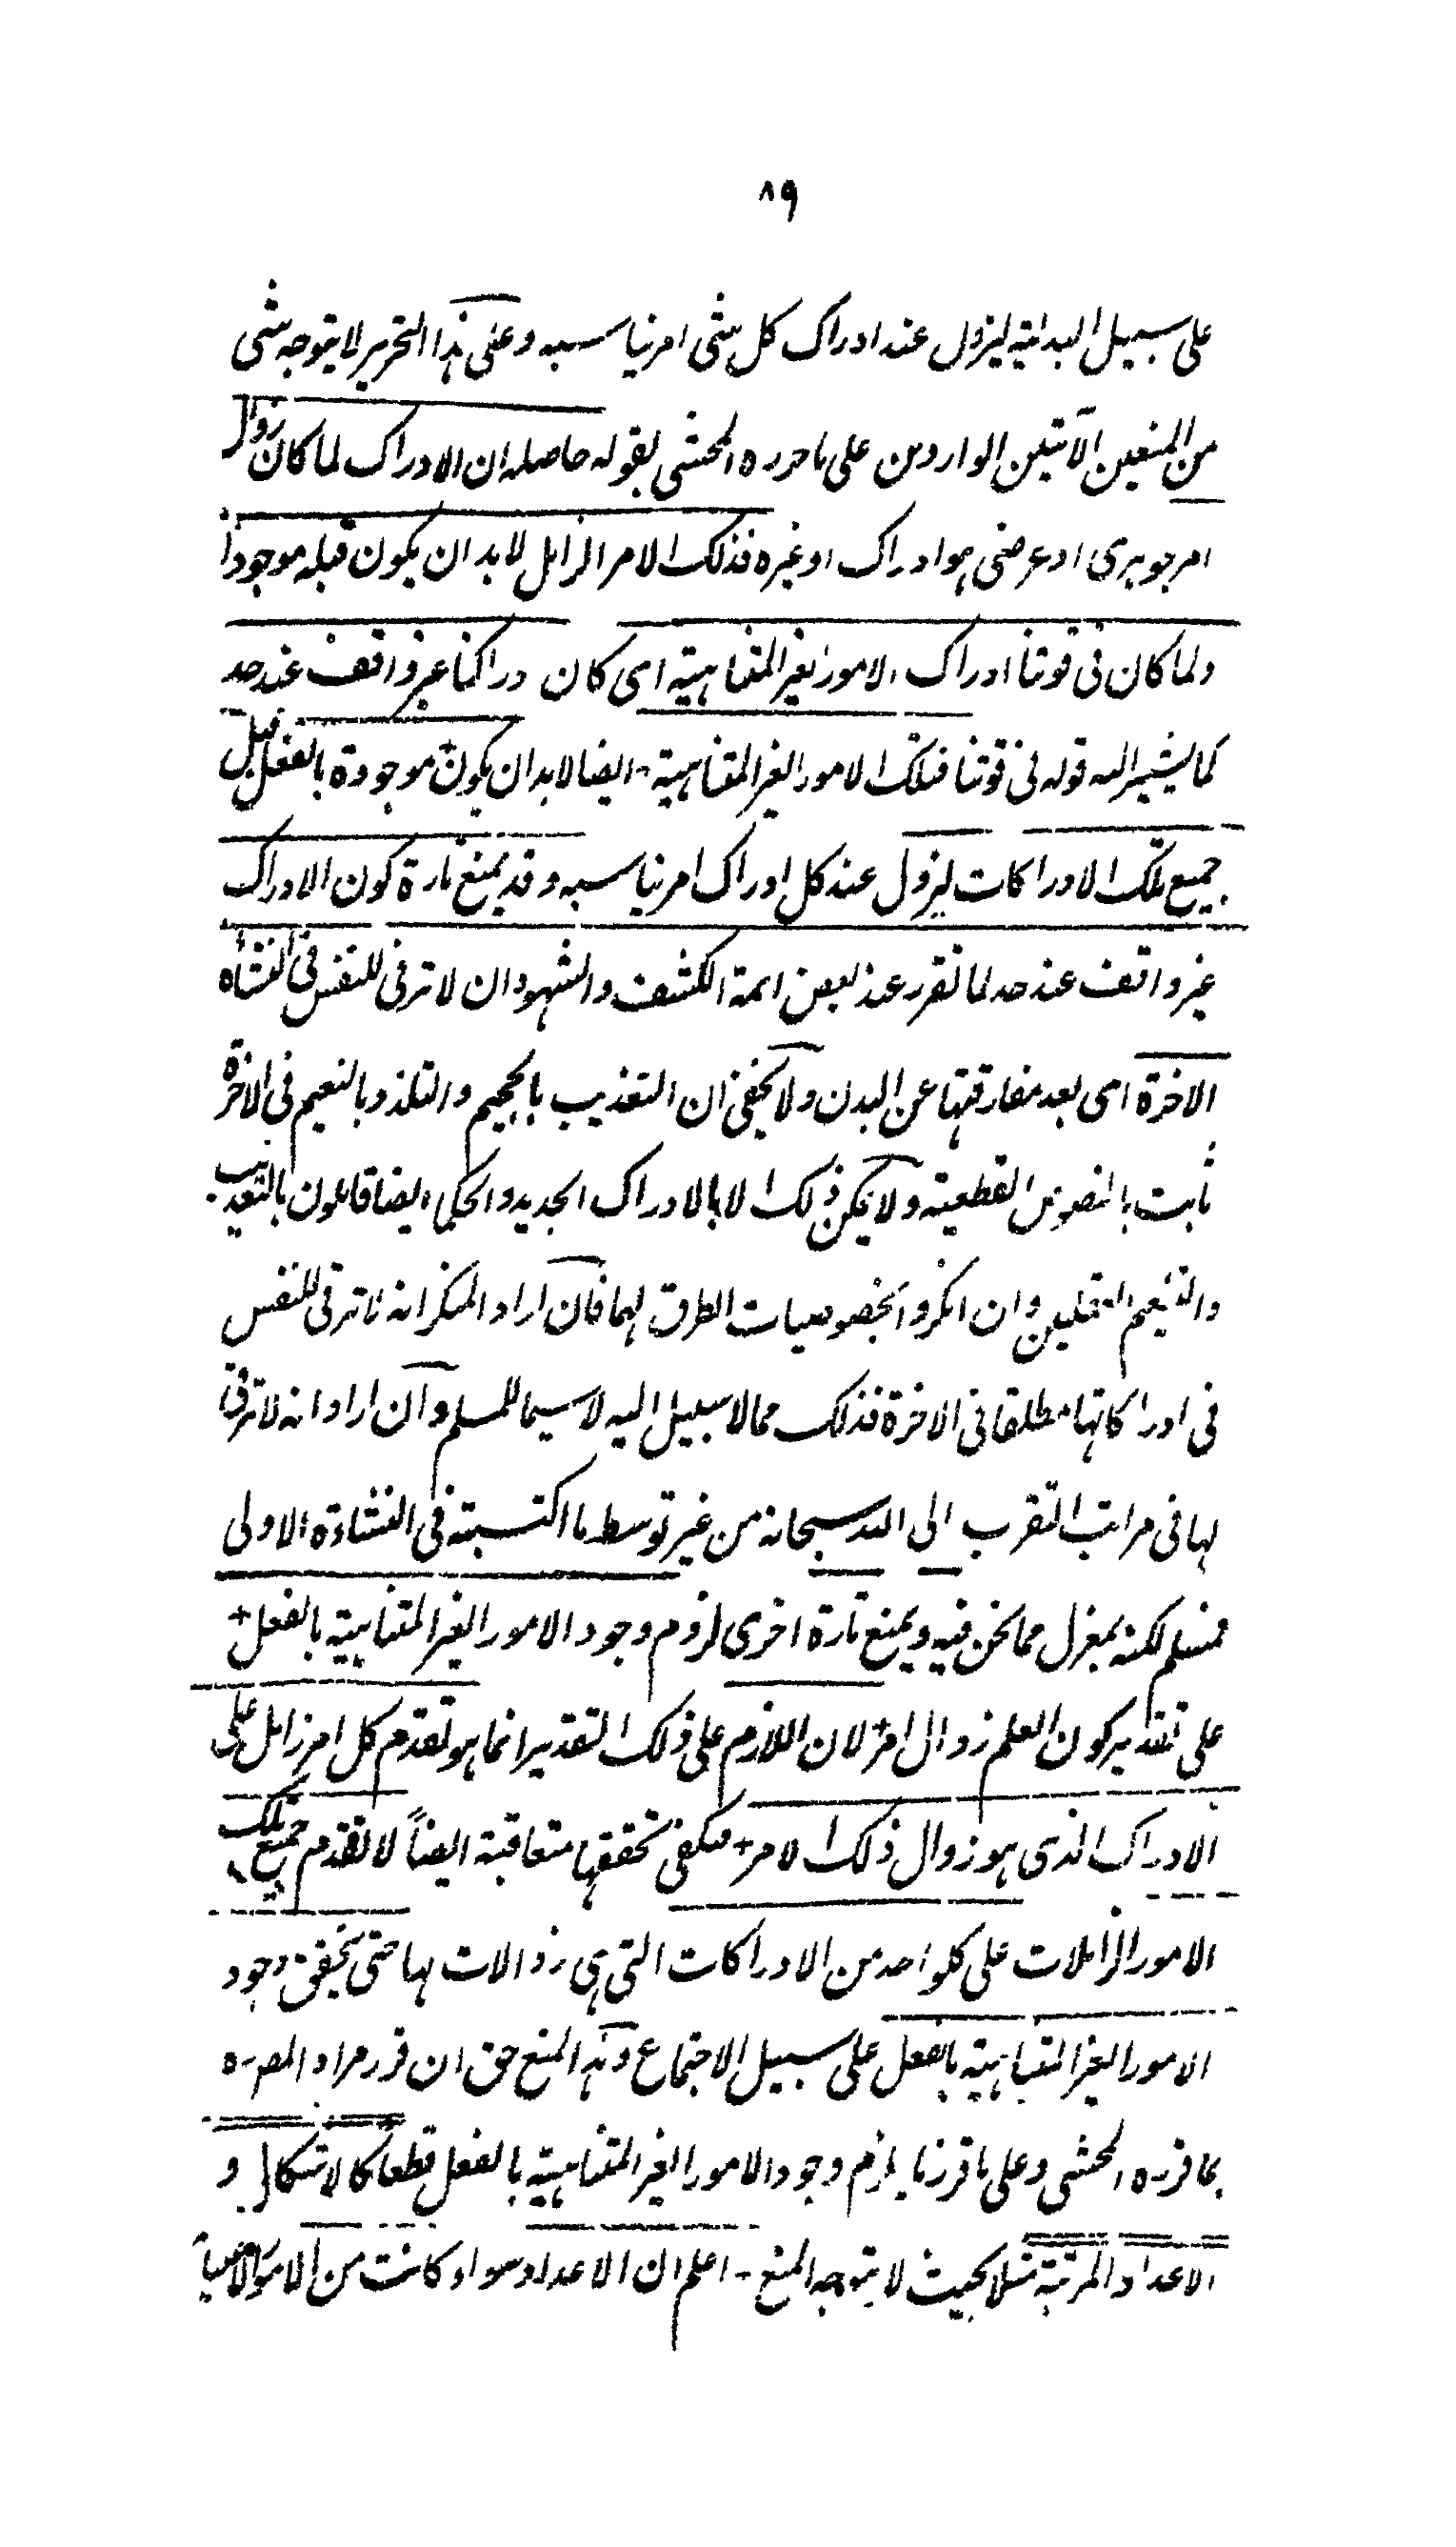 ٨٩
على سبيل البداية ليزول عند ادراك كل شى امر يناسبه وعلى هذا التحرير لا يتوجه شى
من المنعين الآتيين الواردين على ما حرره المحشى بقوله حاصله ان الادراك لما كان زوال
امر جوهرى او عرضى هو ادراك او غيره فذلك الامر الزايل لا بد ان يكون قبله موجوداً
ولما كان فى قوتنا ادراك الامور الغير المتناهية اى كان دراكنا غير واقف عند حد
كما يشير اليه قوله فى قوتنا فتلك الامور الغير المتناهية - ايضا لا بد ان يكون موجودة بالفعل قبل
جميع تلك الادراكات ليزول عند كل ادراك امر يناسبه وقد يمنع تارة كون الادراك
غير واقف عند حد لما تقرر عند بعض ائمة الكشف والشهود ان لا ترقى للنفس فى النشأة
الاخرة اى بعد مفارقتها عن البدن ولا يخفى ان التعذيب بالجحيم والتلذذ بالنعيم فى الاخرة
ثابت بالنصوص القطعية ولا يمكن ذلك الا بالادراك الجديد والحكماء ايضا قائلون بالتعذيب
والتنعيم العقليين وان انكروا بخصوصيات الطرق لهما فان اراد المنكر انه لا ترقى للنفس
فى ادراكاتها مطلقا فى الاخرة فذلك مما لا سبيل اليه لا سيما للمسلم وان اراد انه لا ترقى
لها فى مراتب التقرب الى الله سبحانه من غير توسط ما اكتسبته فى النشاءة الاولى
فمسلم لكنه بمعزل مما نحن فيه ويمنع تارة اخرى لزوم وجود الامور الغير المتناهية بالفعل +
على تقدير كون العلم زوال امر + لان اللازم على ذلك التقدير انما هو تقدم كل امر زايل على
الادراك الذى هو زوال ذلك الامر + فيكفى تحققها متعاقبة ايضاً لا تقدم جميع تلك
الامور الزايلات على كل واحد من الادراكات التى هى زوالات لها حتى يتحقق وجود
الامور الغير المتناهية بالفعل على سبيل الاجتماع وهذا المنع حق ان قرر مراد المصره
بما قرره المحشى وعلى ما قررنا يلزم وجود الامور الغير المتناهية بالفعل قطعا كالاشكال و
الاعداد المرتبة مثلا بحيث لا يتوجه المنع - اعلم ان الاعداد سواء كانت من الامور